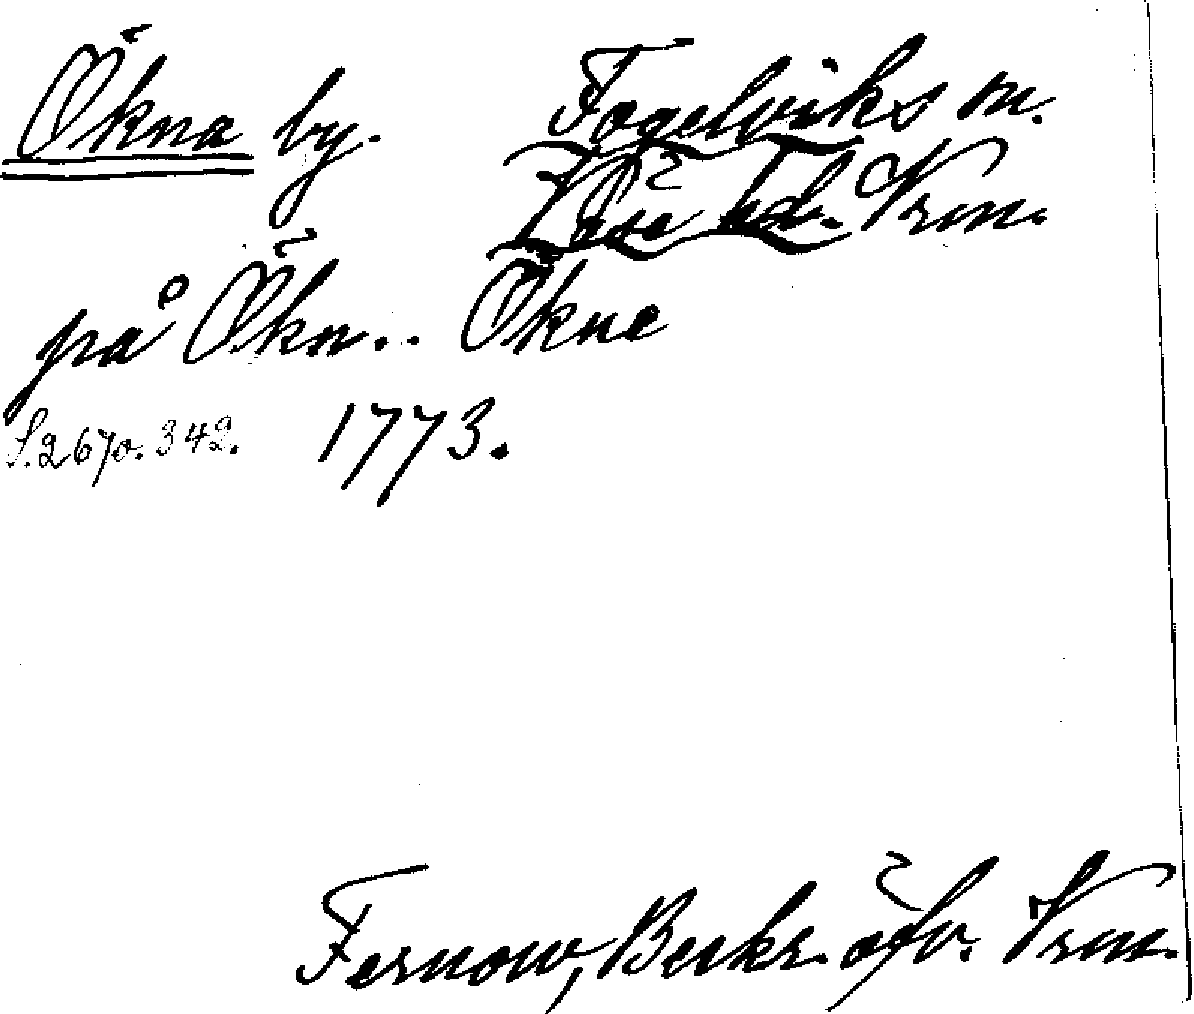 Ökna by. Fogelviks sn.
Väse hd. Vrm.
på Ökn.. Ökne
S. 2670. 342. 1773.
Fernow, Beskr. öfv. Vrm.